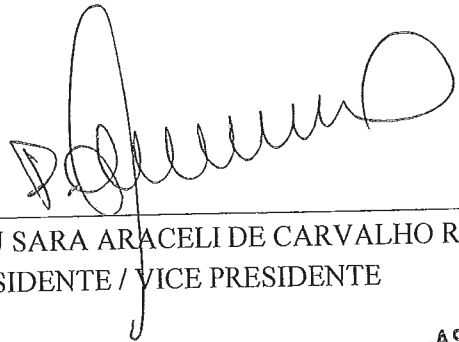 SARA ARACELI DE CARVALHO
SIDENTE / VICE PRESIDENTE